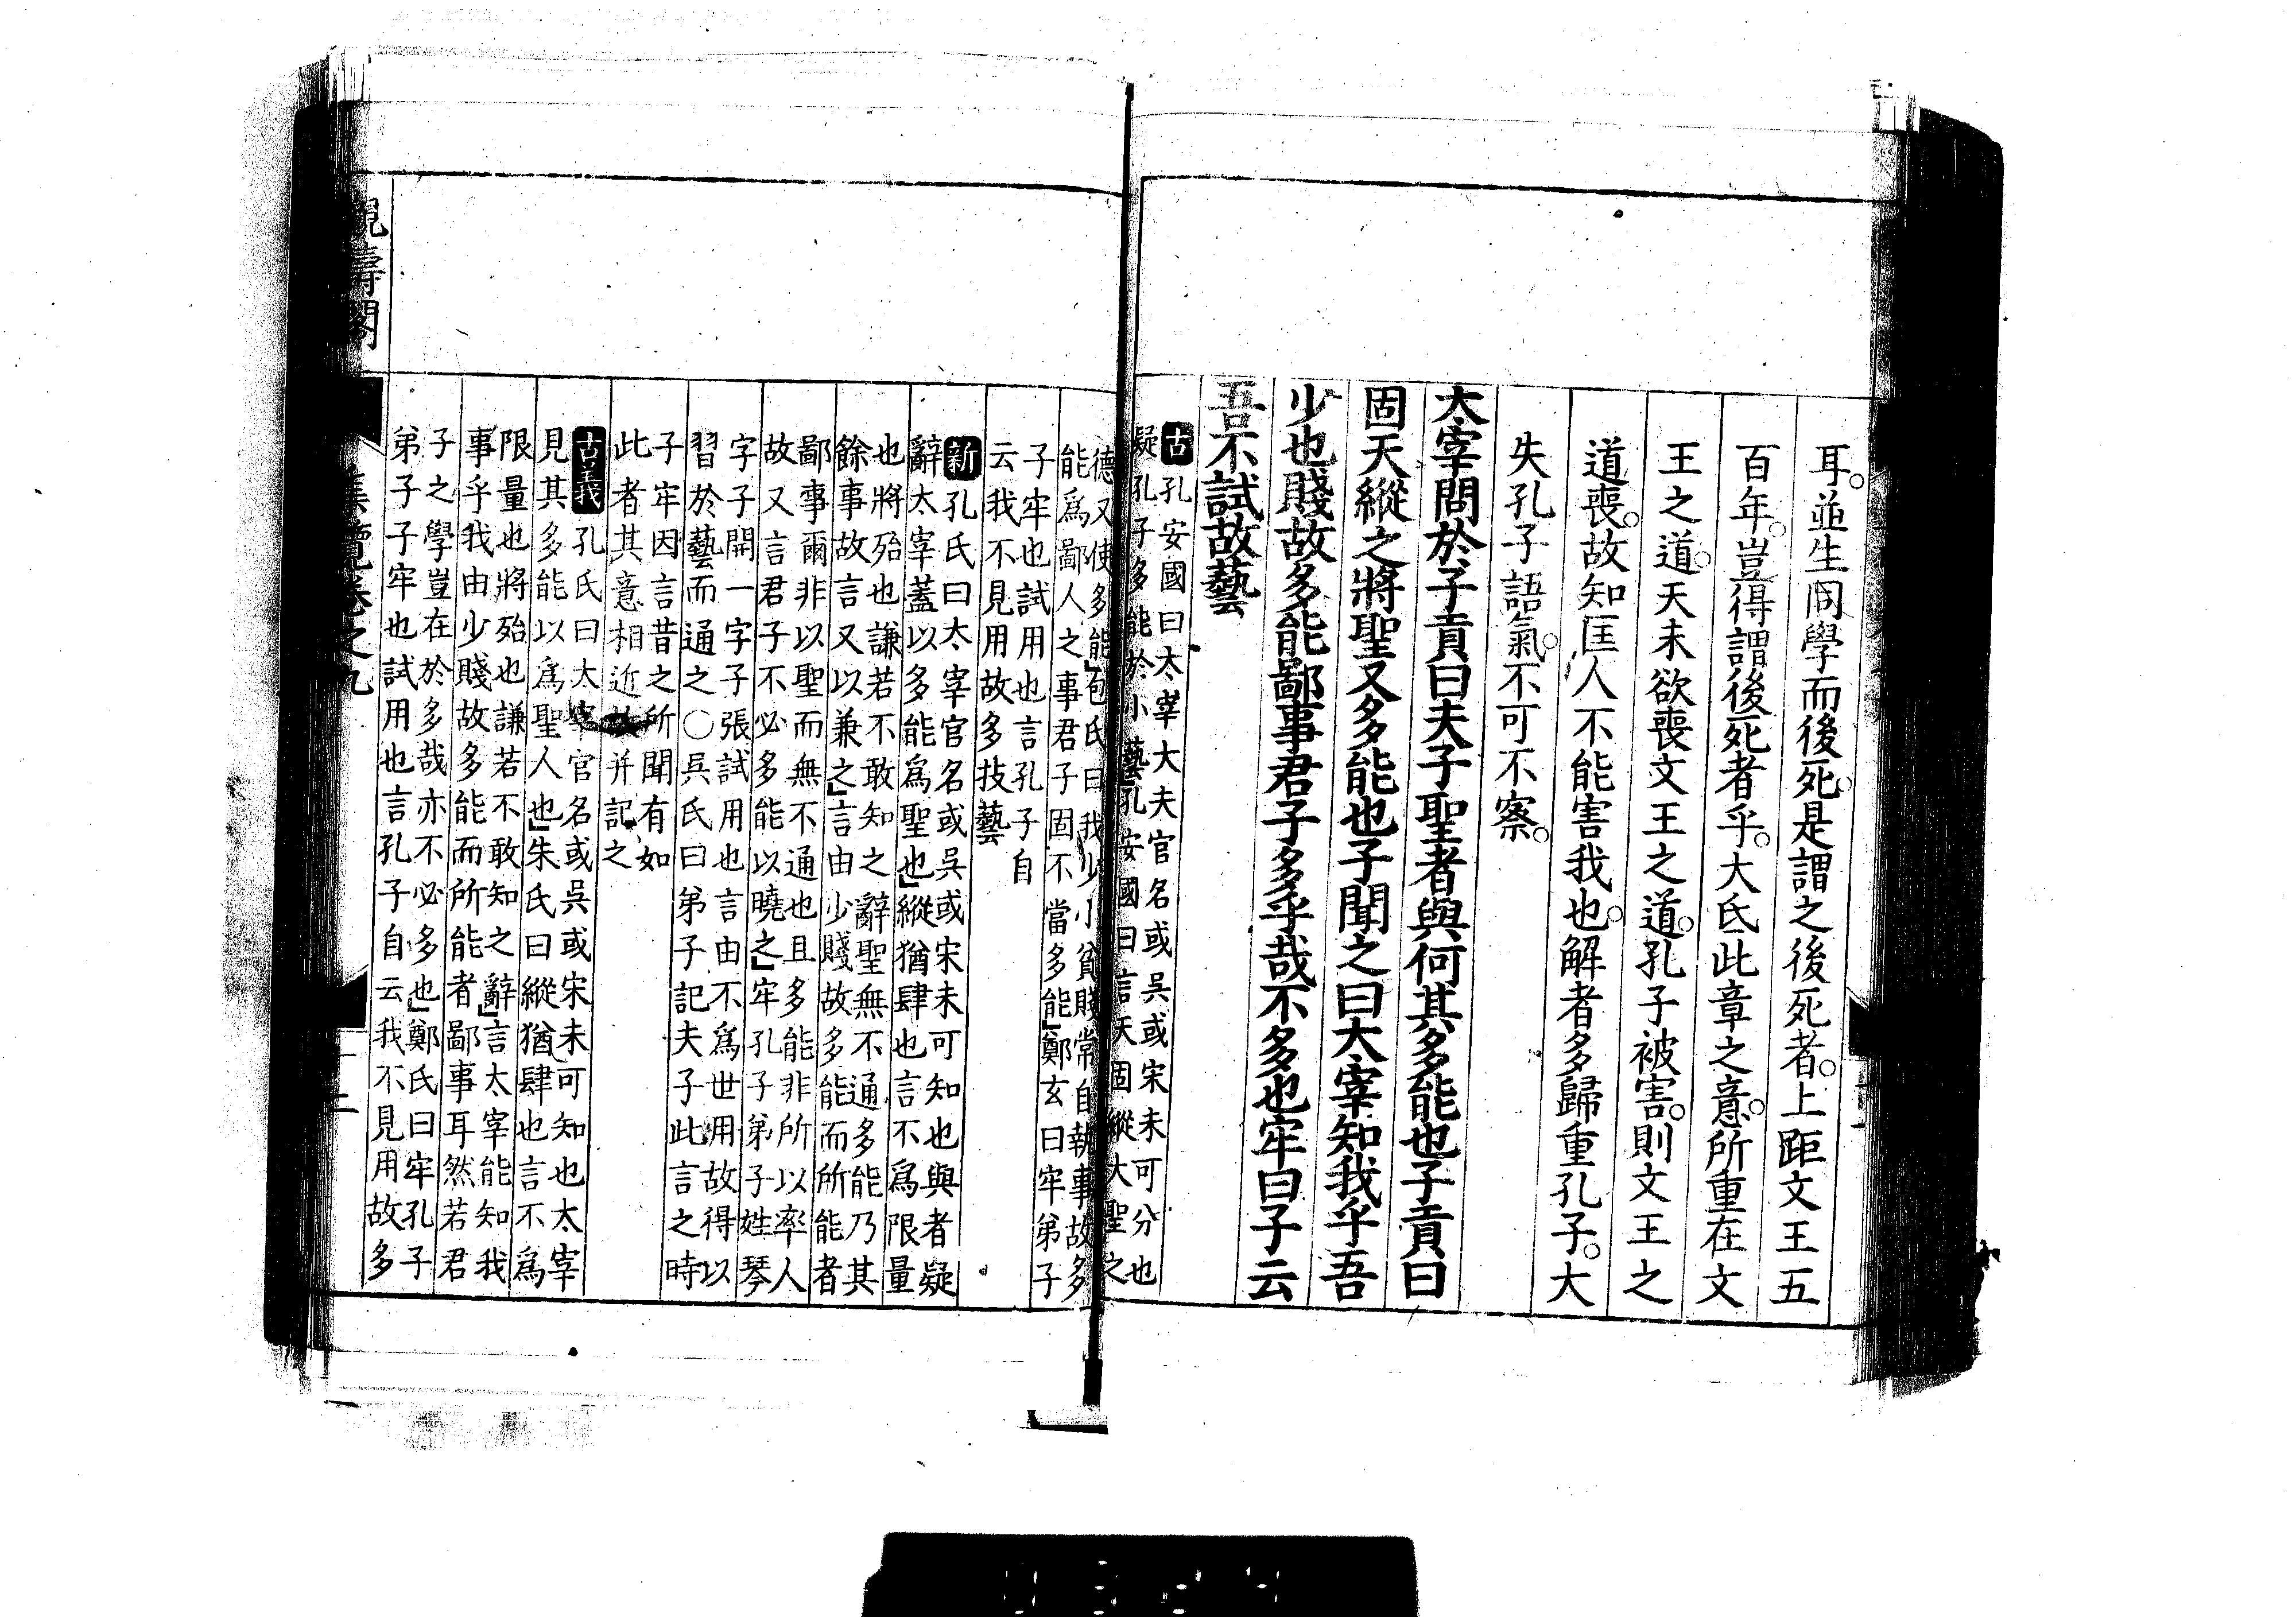 耳。並生同學而後死。是謂之後死者。上距文王五
百年。豈得謂後死者乎。大氐此章之意。所重在文
王之道。天未欲喪文王之道。孔子被害。則文王之
道喪。故知匡人不能害我也。解者多歸重孔子。大
失孔子語氣。不可不察。
太宰問於子貢曰夫子聖者與何其多能也子貢曰
固天縱之將聖又多能也子聞之曰大宰知我乎吾
少也賤故多能鄙事君子多乎哉不多也牢曰子云
吾不試故藝
古孔安國曰太宰大夫官名或吳或宋未可分也
疑孔子多能於小藝孔安國曰言天固縱大聖之
德又使多能」包氏曰我少小貧賤常自執事故多
能爲鄙人之事君子固不當多能」鄭玄曰牢弟子
子牢也試用也言孔子自
云我不見用故多技藝
新孔氏曰太宰官名或吳或宋未可知也與者疑
辭太宰蓋以多能爲聖也」縱猶肆也言不爲限量
也將殆也謙若不敢知之辭聖無不通多能乃其
餘事故言又以兼之」言由少賤故多能而所能者
鄙事爾非以聖而無不通也且多能非所以率人
故又言君子不必多能以曉之」牢孔子弟子姓琴
字子開一字子張試用也言由不爲世用故得以
習於藝而通之○吳氏曰弟子記夫子此言之時
子牢因言昔之所聞有如
此者其意相近故并記之
古義孔氏曰太宰官名或吳或宋未可知也太宰
見其多能以爲聖人也」朱氏曰縱猶肆也言不爲
限量也將殆也謙若不敢知之辭」言太宰能知我
事乎我由少賤故多能而所能者鄙事耳然若君
子之學豈在於多哉亦不必多也」鄭氏曰牢孔子
弟子子牢也試用也言孔子自云我不見用故多
觀濤閣
集覽卷之九
十二